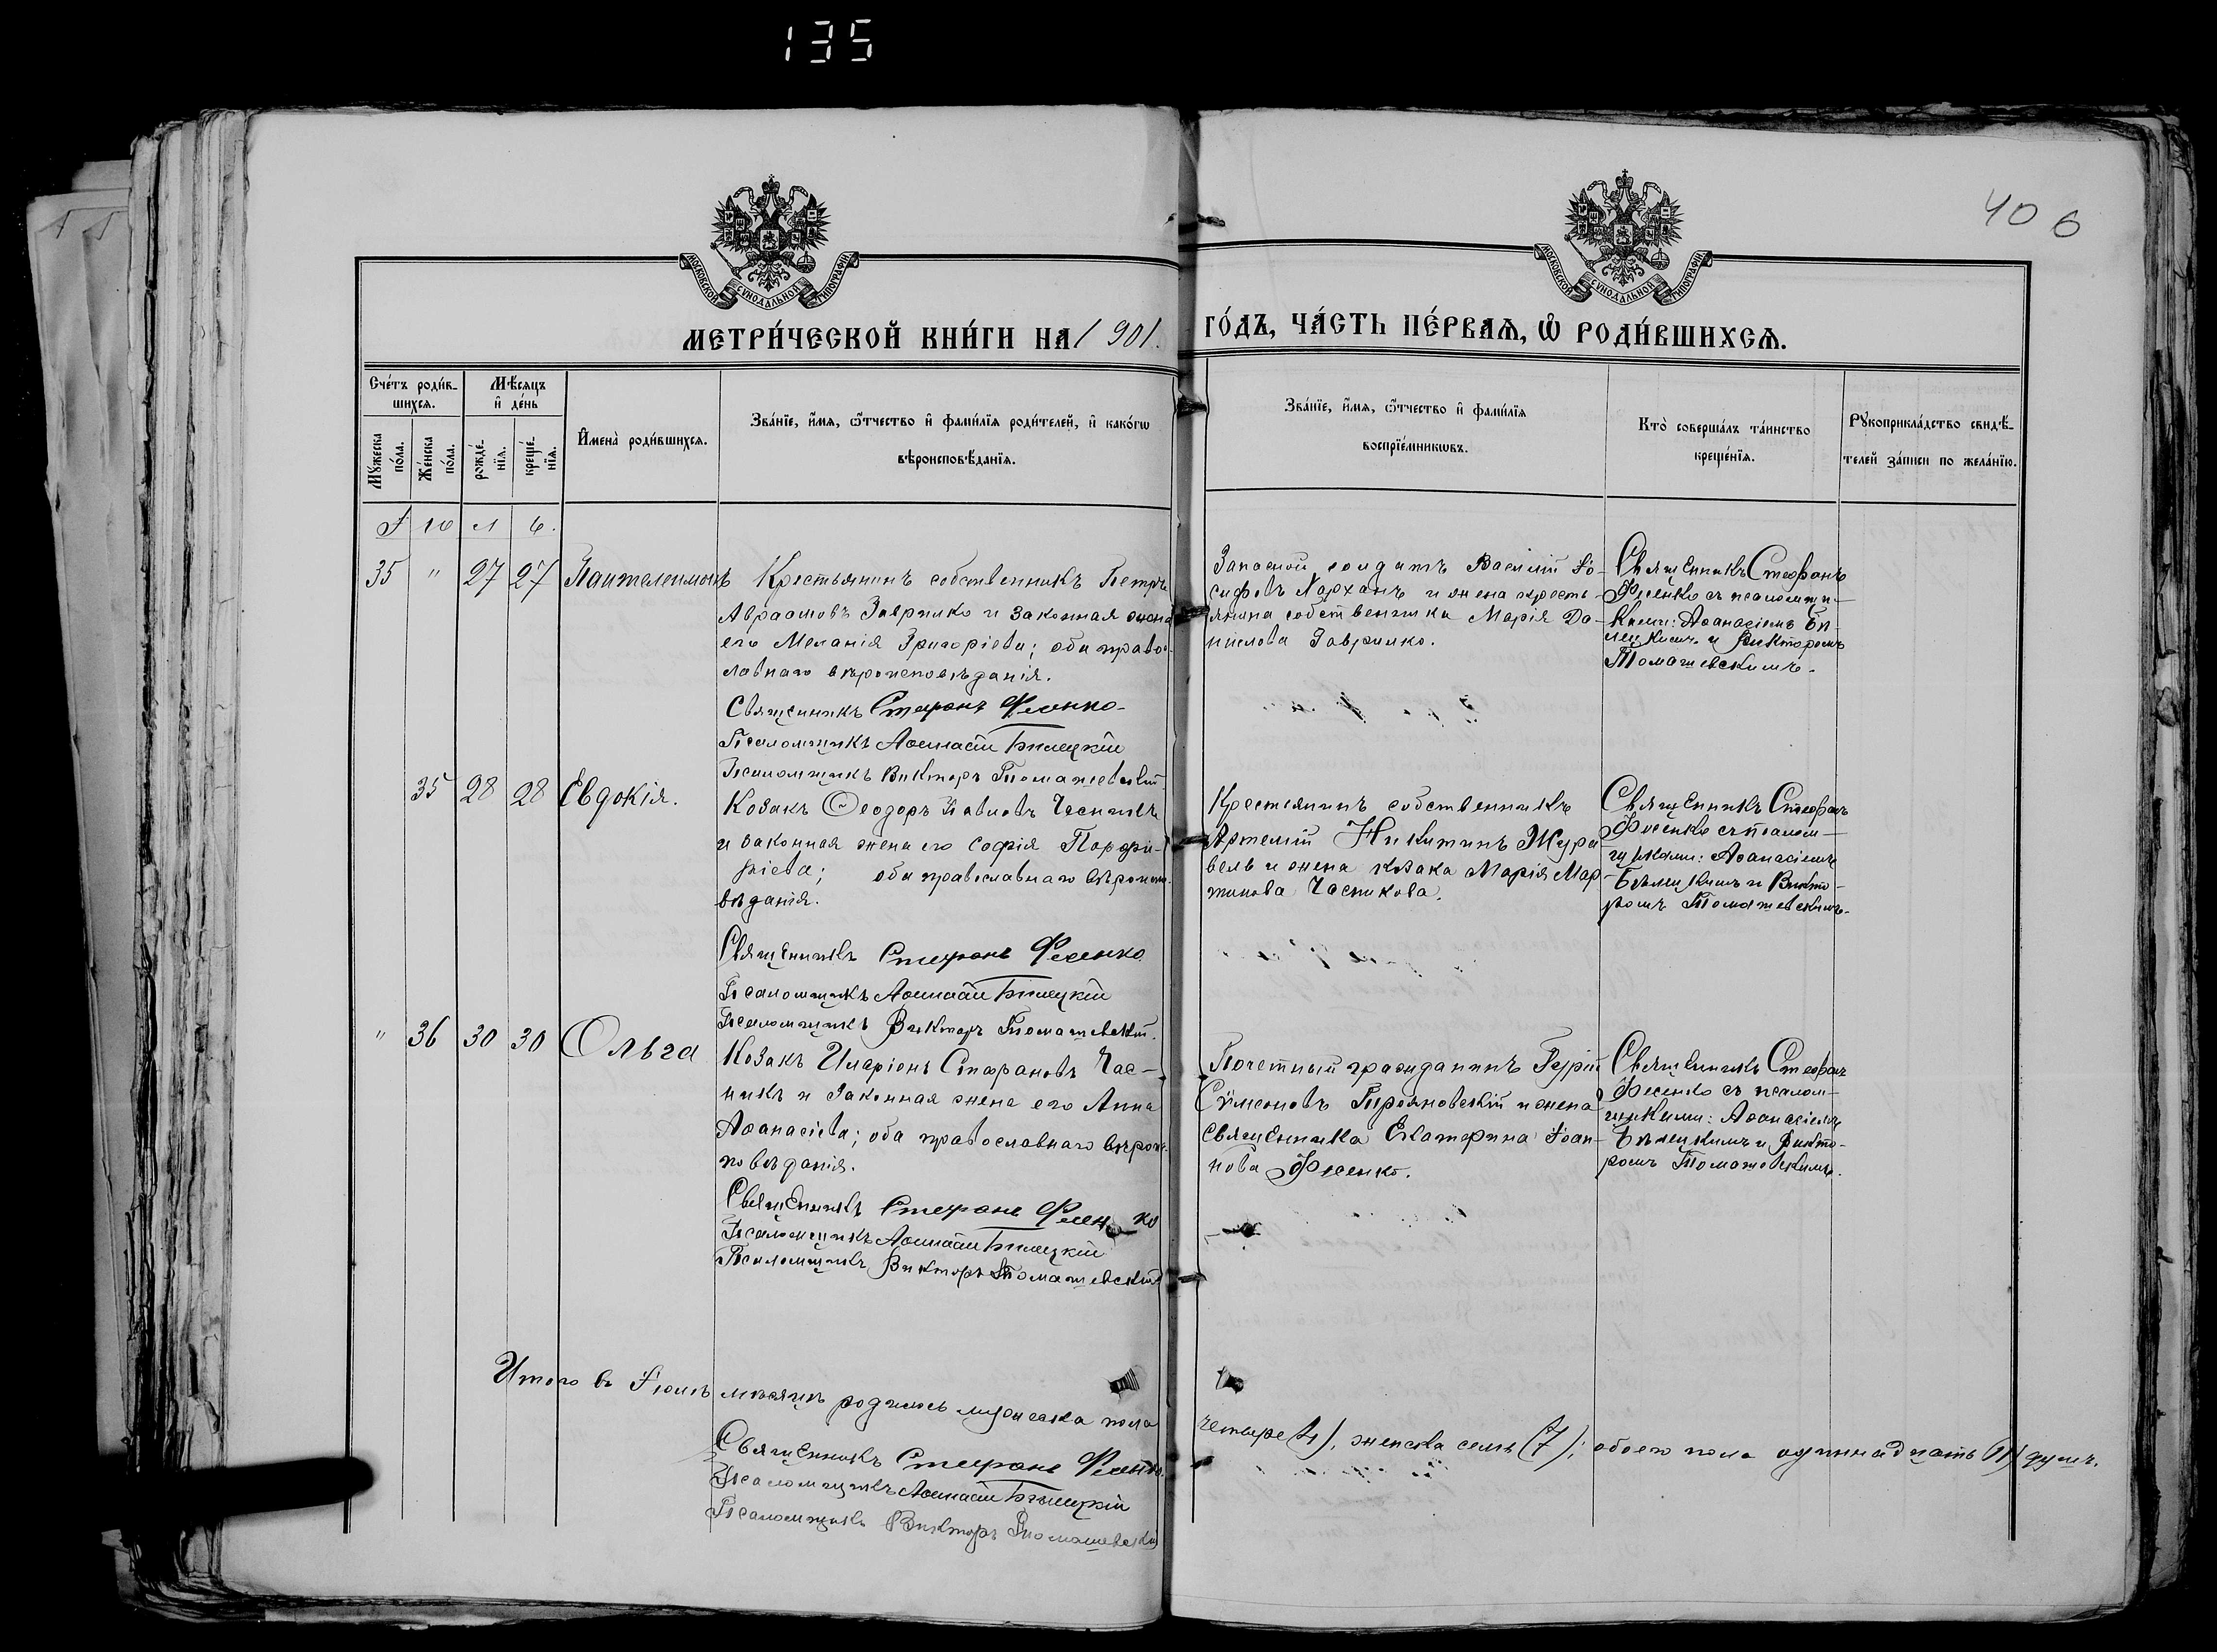 135
40 6
МОСКОВСКОЙ СѴНОДАЛЬНОЙ ТИПОГРАФІИ
МОСКОВСКОЙ СѴНОДАЛЬНОЙ ТИПОГРАФІИ
МЕТРИ́ЧЕСКОЙ КНИ́ГИ НА 1901.
ГО́ДЪ, ЧА́СТЬ ПЕ́РВАѦ, Ѽ РОДИ́ВШИХСѦ.
Сче́тъ роди́в-
шихсѧ.
Мꙋ́жеска по́ла.
Же́нска по́ла.
Мѣ́сѧцъ
и҆ де́нь
рожде́-
нїѧ.
креще́-
нїѧ.
И҆мена̀ роди́вшихсѧ.
Зва́нїе, и҆́мѧ, ѻ҆́тчество и҆ фами́лїѧ роди́телей, и҆ како́гѡ
вѣроисповѣ́данїѧ.
Зва́нїе, и҆́мѧ, ѻ҆́тчество и҆ фами́лїѧ
воспрїе́мникѡвъ.
Кто̀ соверша́лъ та́инство
креще́нїѧ.
Рꙋкоприкла́дство свидѣ́-
телей за́писи по жела́нїю.
І ю л ь.
35 " 27 27 Пантелеимонъ
Крестьянинъ собственникъ Петръ
Авраамовъ Гаврилко и законная жена
его Меланія Григоріева; оба право-
славнаго вѣроисповѣданія.
Священникъ Стефанъ Фесенко
Псаломщикъ Аѳанасій Бѣлецкій
Псаломщикъ Викторъ Томашевскій
Запасной солдатъ Василій Іо-
сифовъ Кархань и жена кресть-
янина собственника Марія Да-
нилова Гаврилко.
Священникъ Стефанъ
Фесенко съ псаломщи-
ками: Аѳанасіемъ Бѣ-
лецкимъ и Викторомъ
Томашевскимъ.
35 28 28 Евдокія.
Козакъ Ѳеодоръ Павловъ Часникъ
и законная жена его Софія Порфи-
ріева; оба православнаго вѣроиспо-
вѣданія.
Священникъ Стефанъ Фесенко
Псаломщикъ Аѳанасій Бѣлецкій
Псаломщикъ Викторъ Томашевскій.
Крестьянинъ собственникъ
Артемій Никитинъ Жура-
вель и жена козака Марія Мар-
тинова Часникова.
Священникъ Стефанъ
Фесенко съ псалом-
щиками: Аѳанасіемъ
Бѣлецкимъ и Викто-
ромъ Томашевскимъ.
" 36 30 30 Ольга
Козакъ Иларіонъ Стефановъ Час-
никъ и законная жена его Анна
Аѳанасіева; оба православнаго вѣроис-
повѣданія.
Священникъ Стефанъ Фесенко
Псаломщикъ Аѳанасій Бѣлецкій
Псаломщикъ Викторъ Томашевскій
Почетный гражданинъ Гурій
Сѵмеоновъ Трояновскій и жена
священника Екатерина Іоан-
нова Фесенко.
Священникъ Стефанъ
Фесенко съ псалом-
щиками: Аѳанасіемъ
Бѣлецкимъ и Викто-
ромъ Томашевскимъ.
Итого въ Іюлѣ мѣсяцѣ родилось мужеска пола
четыре (4), женска семь (7); обоего пола одиннадцать (11) душъ.
Священникъ Стефанъ Фесенко.
Псаломщикъ Аѳанасій Бѣлецкій
Псаломщикъ Викторъ Томашевскій